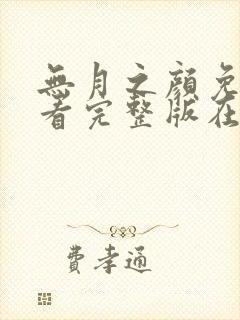 無月之顏免
看完整版在
費孝通